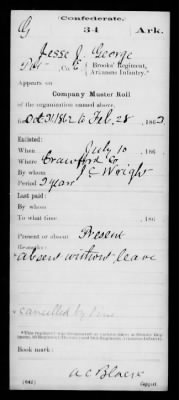 Confederate.
G 34 Ark.
Jesse J. George
Pvt, Co. E, Brooks' Regiment, Arkansas Infantry.*
Appears on
Company Muster Roll
of the organization named above,
for Oct 31 1862 to Feb. 28, 1863.
Enlisted:
When July 10, 186
Where Crawford Co
By whom J C Wright
Period 3 years
Last paid:
By whom
To what time , 186 .
Present or absent Present
Remarks:
absent without leave
cancelled by
Book mark:
A C Black
(642) Copyist.